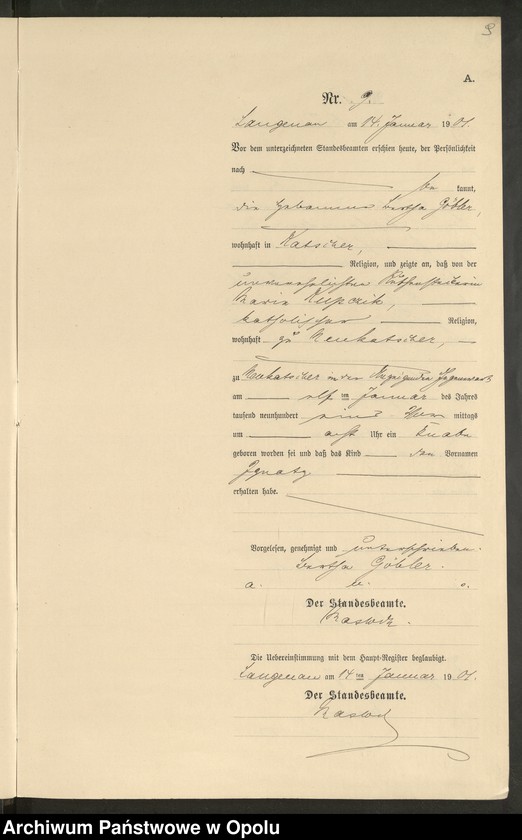 9
A.
Nr. 9.
Langenau am 14. Januar 1901.
Vor dem unterzeichneten Standesbeamten erschien heute, der Persönlichkeit
nach
be kannt,
die Hebamme Bertha Göbler,
wohnhaft in Katscher,
Religion, und zeigte an, daß von der
unverehelichten
Maria
katholischer Religion,
wohnhaft zu Neukatscher,
zu Neukatscher in der Gegenwart
am elf ten Januar des Jahres
tausend neunhundert eins Vor mittags
um acht Uhr ein Knabe
geboren worden sei und daß das Kind den Vornamen
Ignatz
erhalten habe.
Vorgelesen, genehmigt und unterschrieben.
Bertha Göbler.
a. u. s.
Der Standesbeamte.
Die Uebereinstimmung mit dem Haupt-Register beglaubigt.
Langenau am 14 ten Januar 1901.
Der Standesbeamte.
Archiwum Państwowe w Opolu